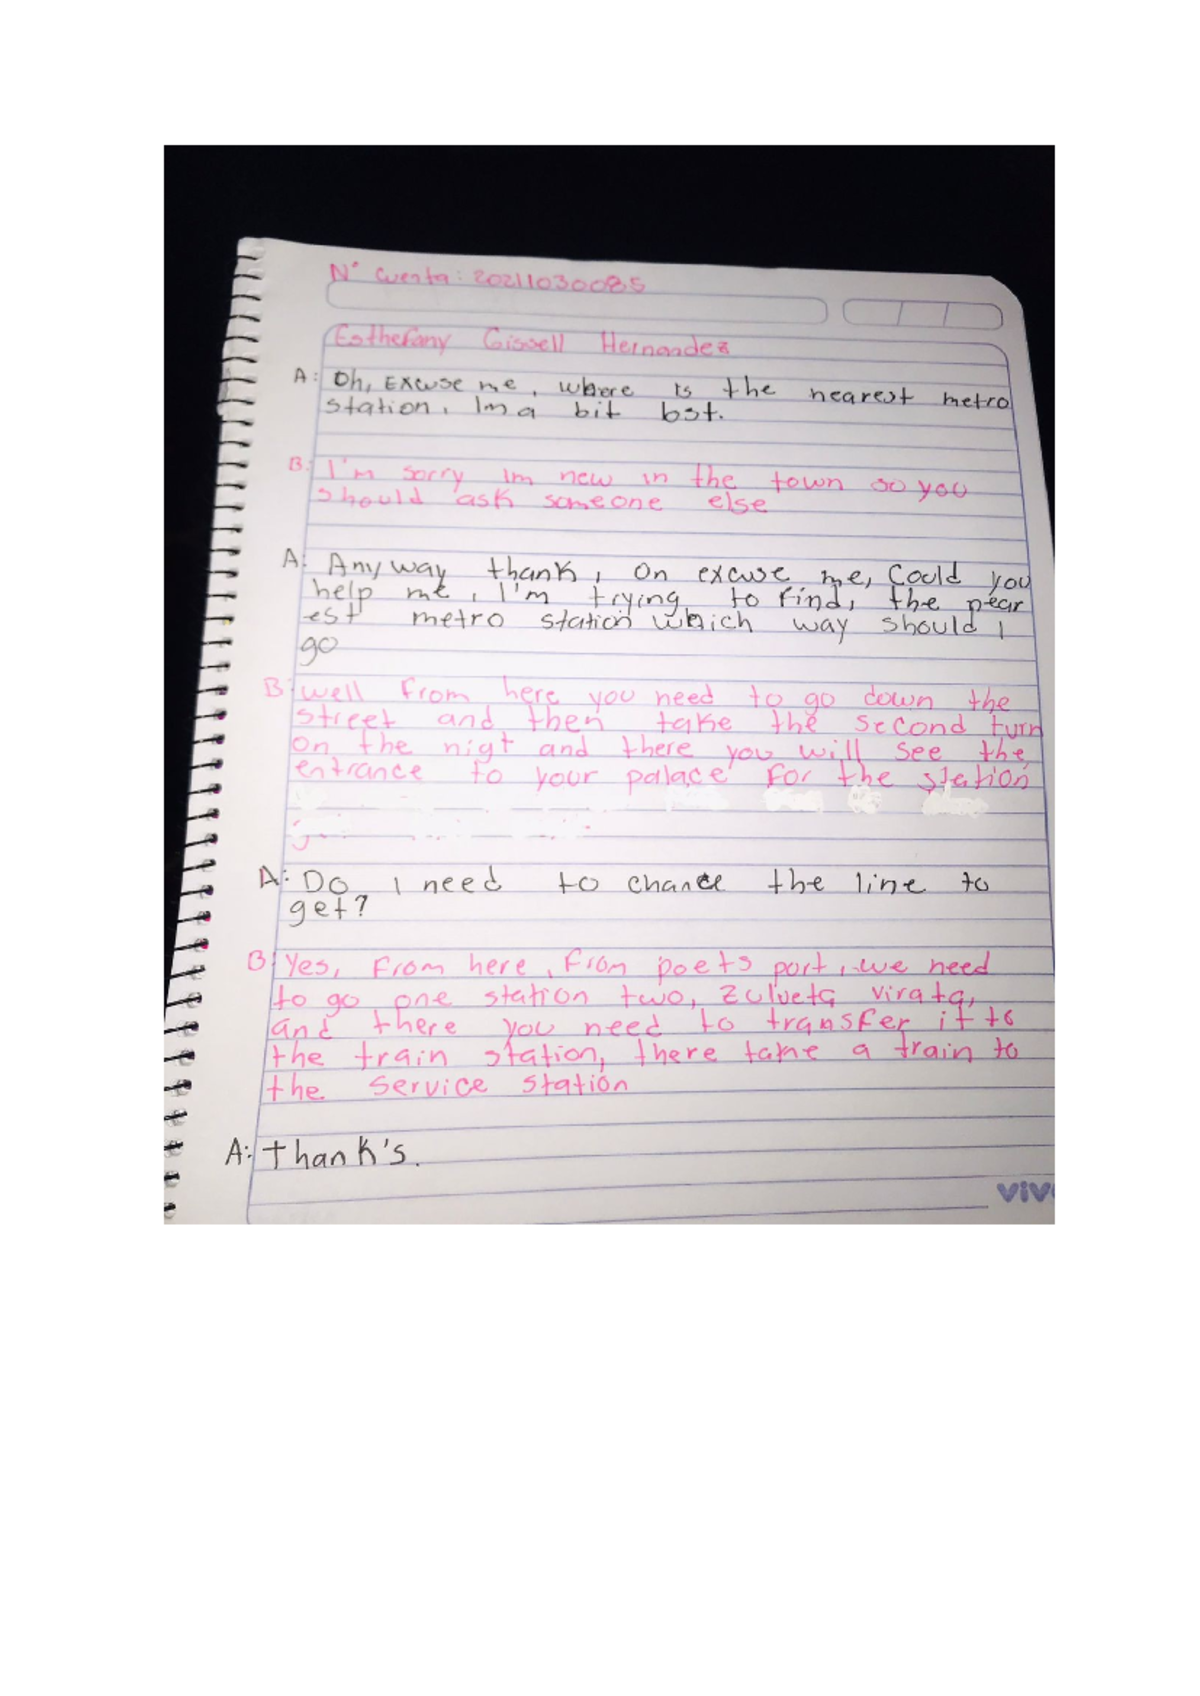 N° Cuenta: 20211030085
Esthefany Gissell Hernandez
A: Oh, Excuse me, where is the nearest metro
station, Im a bit lost.
B: I'm sorry Im new in the town so you
should ask someone else
A: Any way thank, on excuse me, Could you
help me, I'm trying to find, the near
est metro station which way should I
go
B: well from here you need to go down the
street and then take the second turn
on the nigt and there you will see the
entrance to your palace for the station
A: Do I need to chance the line to
get?
B: Yes, From here, from poets port, we need
to go one station two, Zulueta virata,
and there you need to transfer it to
the train station, there take a train to
the service station
A: thank's.
viv